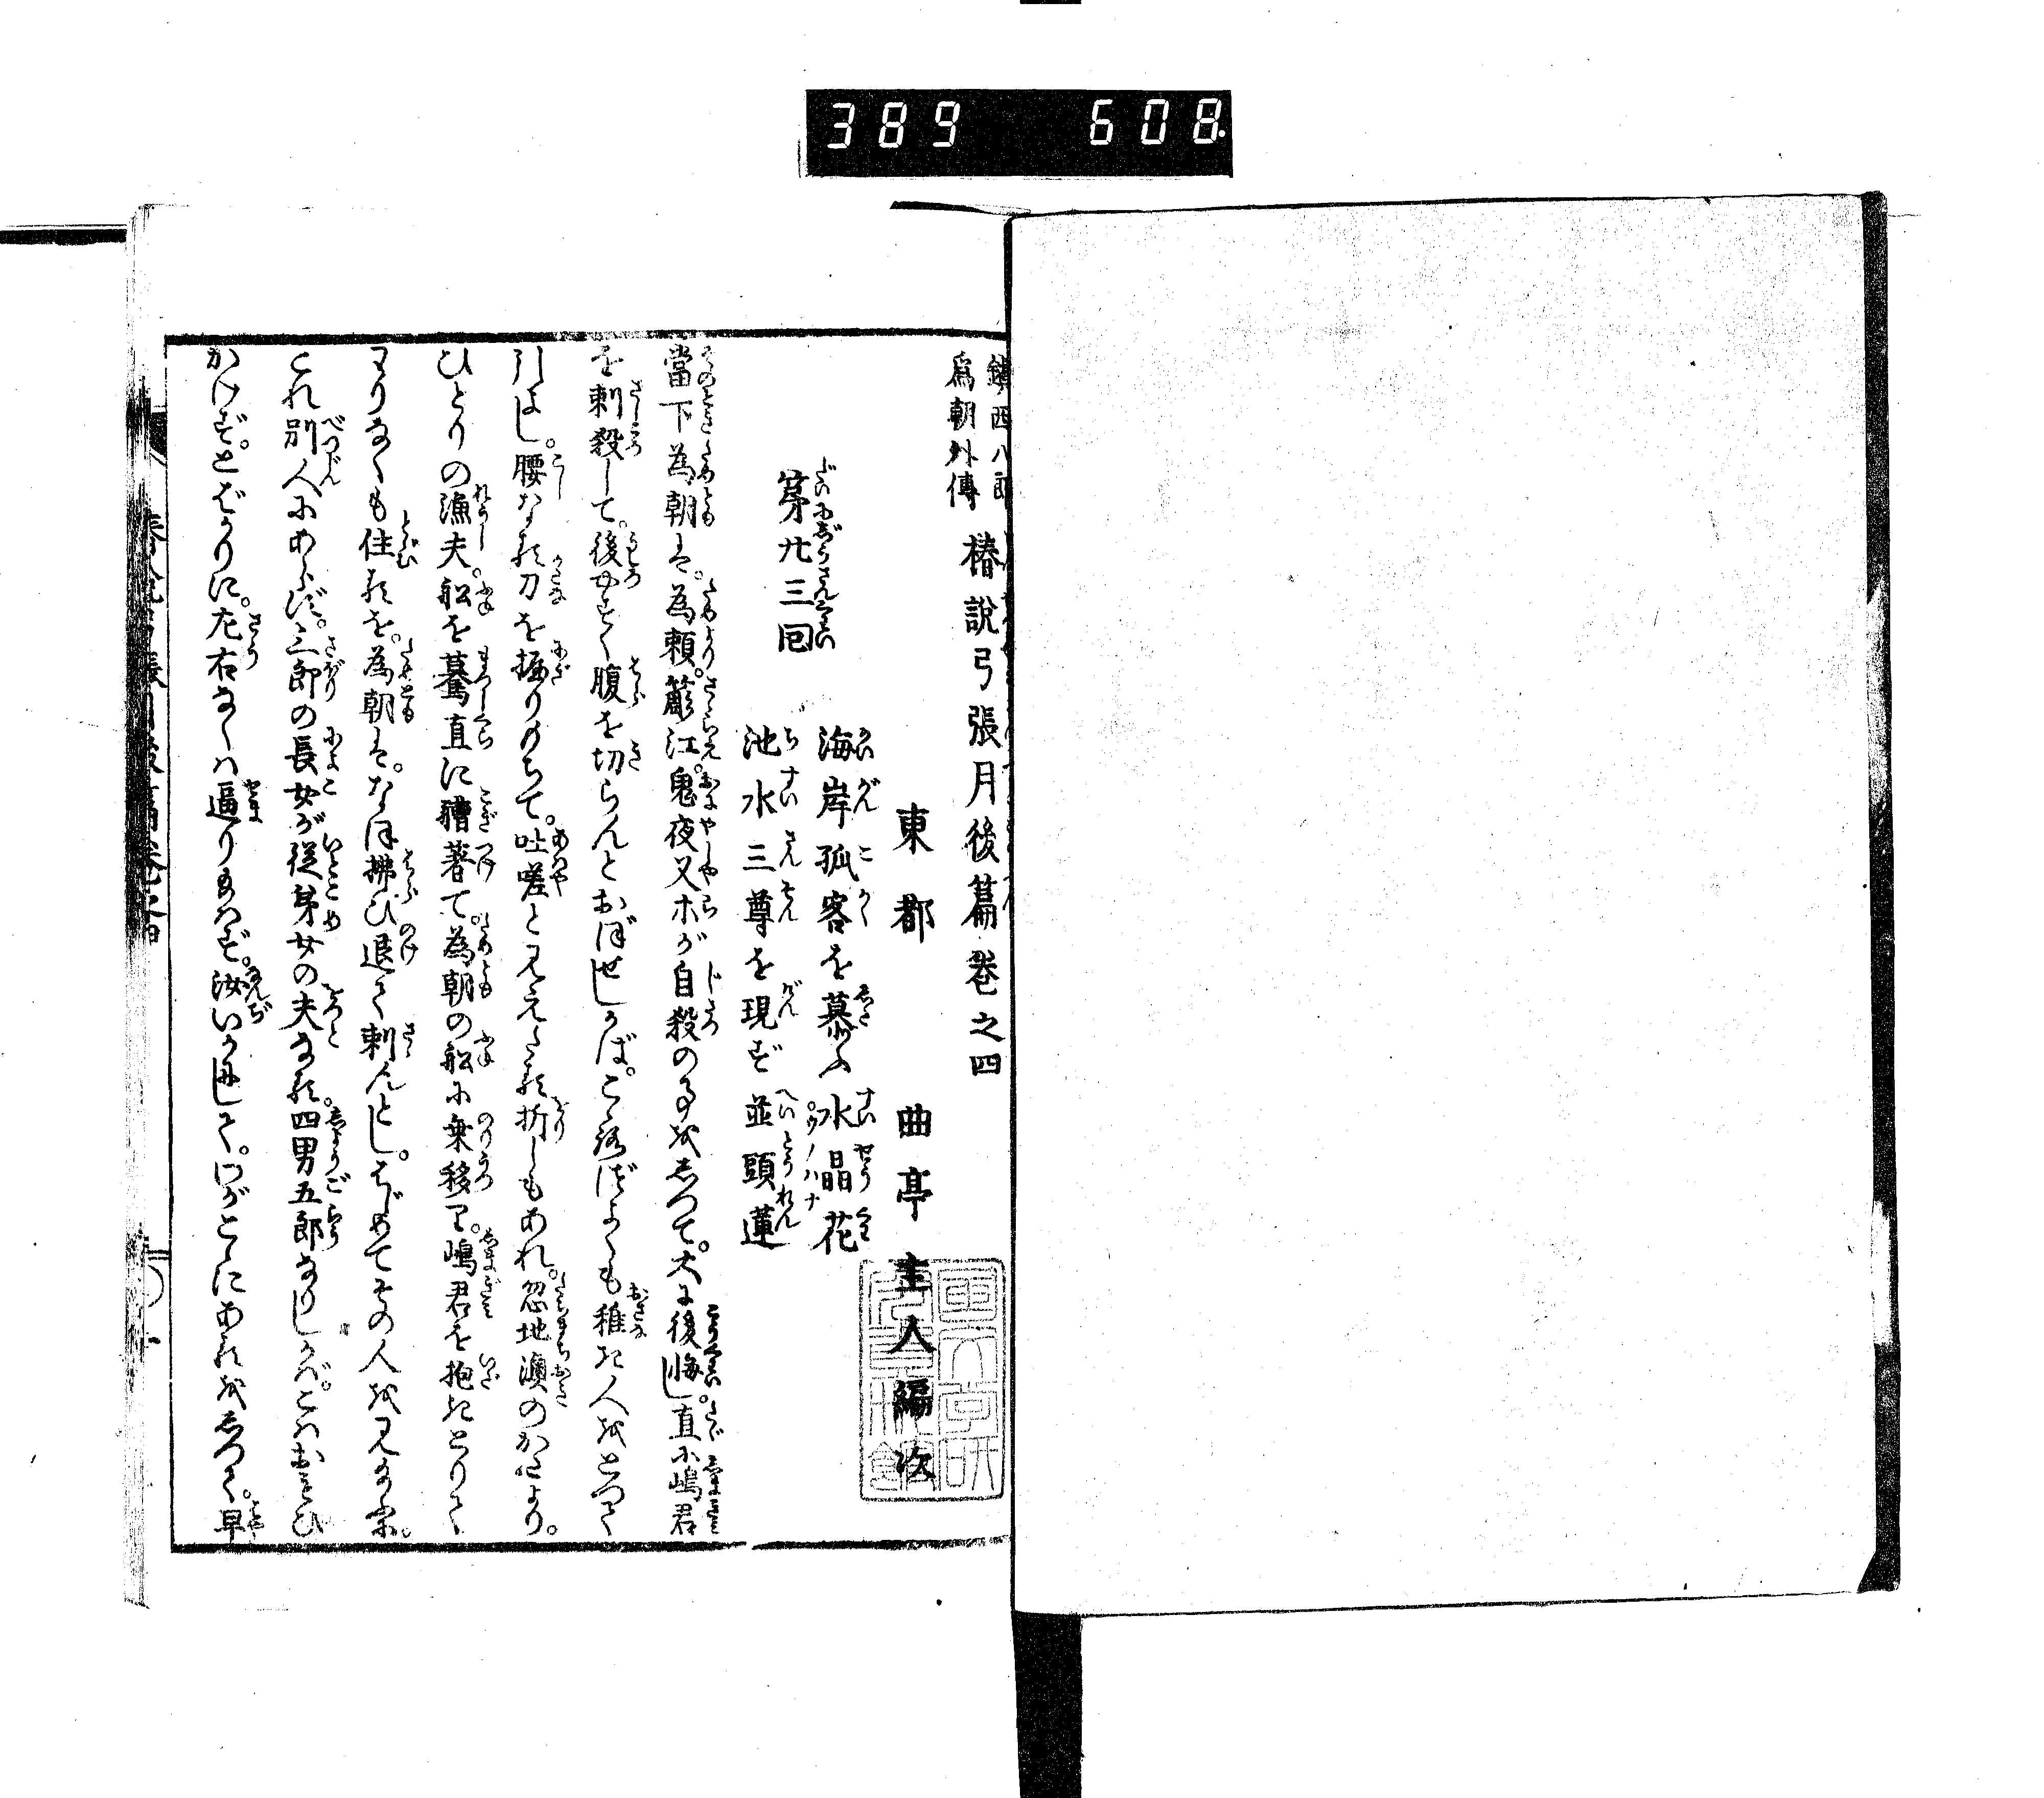 389 608
鎮西八郎
為朝外傳
椿說弓張月後篇卷之四
東都 曲亭主人編次
第廿三回
海岸孤客を慕ふ水晶花
池水三尊を現ず並頭蓮
當下為朝は。為頼。簓江。鬼夜叉ホが自殺の事をしつて。大に後悔し。直に嶋君
を刺殺して。後やすく腹を切らんとおぼせしかば。こゝろづよくも稚き人をとつて
引よし。腰なる刀を握りもちて。吐嗟と見えたる折しもあれ。忽地瀕のかたより。
ひとりの漁夫。舩を驀直に漕著て。為朝の舩に乗移り。嶋君を抱きとりて
わりなくも住るを。為朝は。なほ拂ひ退て刺んとし。はじめてその人を見給ふ。
これ別人にあらず。三郎の長女が從弟女の夫なる。四男五郎なりしかば。こはおもひ
かけず。とばかりに。左右なくは逼り給はず。汝いかにして。わがこゝにあるをしつて。早